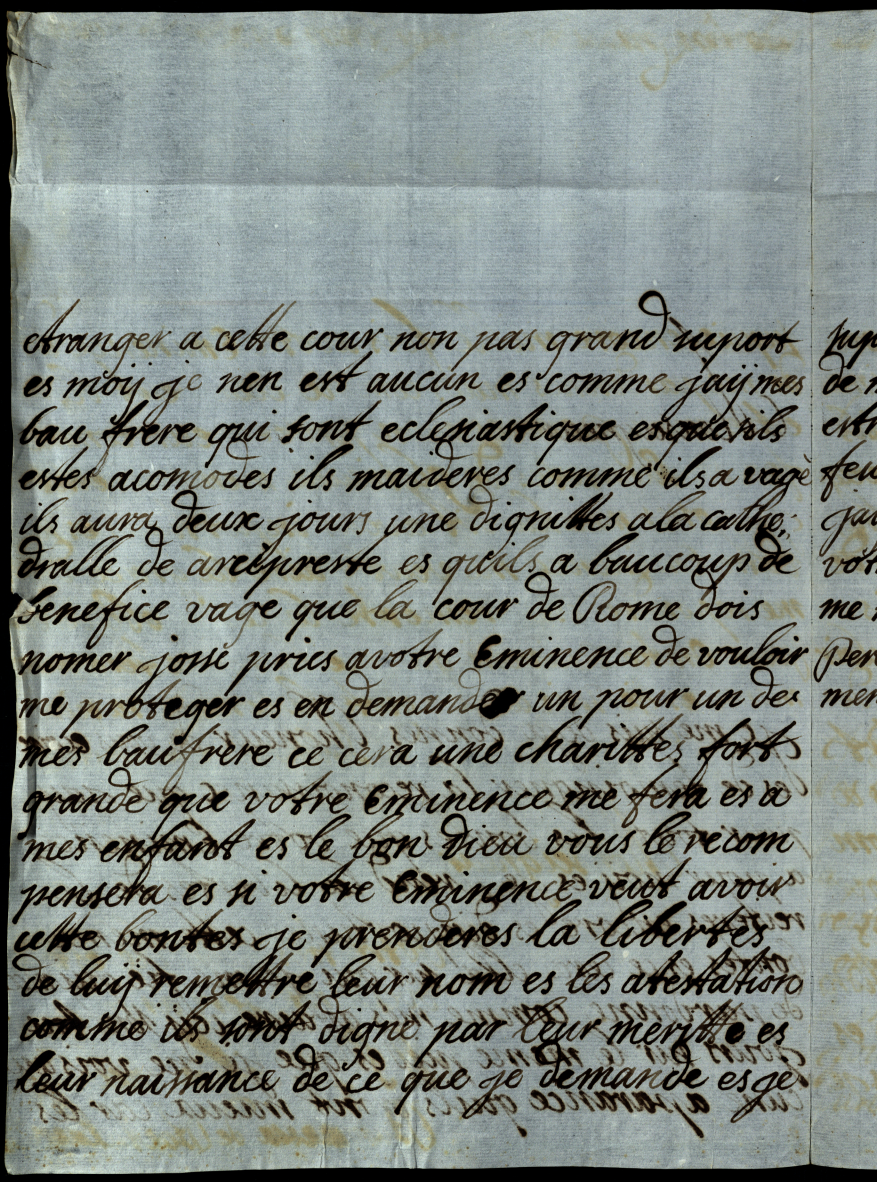 etranger a cette cour non pas grand suport
es moÿ je nen est aucun es comme jaÿ mes
bau frere qui sont eclesiastique es que sils
estes acomodes ils maideres comme ils a vage
ils aura deux jours une dignittes a la cathe:
dralle de arcipreste es quils a baucoup de
benefice vage que la cour de Rome dois
nomer josse pries avotre Eminence de vouloir
me proteger es en demander un pour un de
mes bau frere ce cera une charittes fort
grande que votre Eminence me fera es a
mes enfant es le bon dieu vous le recom
pensera es si votre Eminence veut avoir
cette bontes je prenderes la libertes
de luÿ remettre leur nom es les atestation
comme ils sont digne par leur meritte es
leur naissance de ce que je demande es je